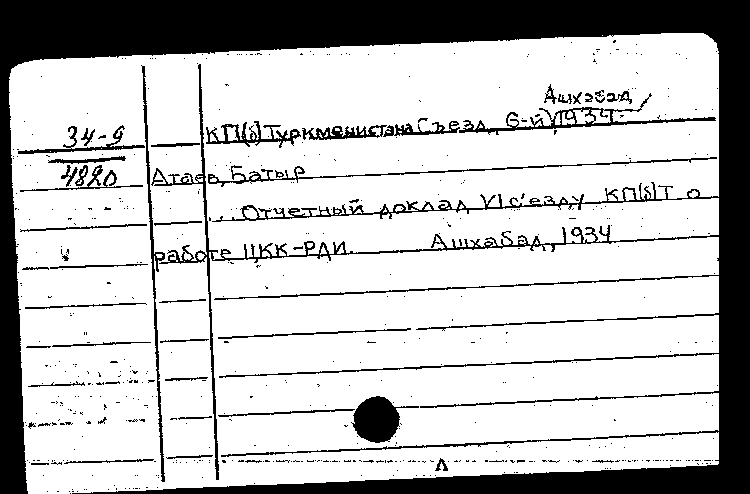 Ашхабад,
34-9 КП(б) Туркменистана Съезд, 6-й, 1934.
4820 Атаев, Батыр
... Отчетный доклад VI с'езду КП(б)Т о
работе ЦКК-РДИ. Ашхабад, 1934